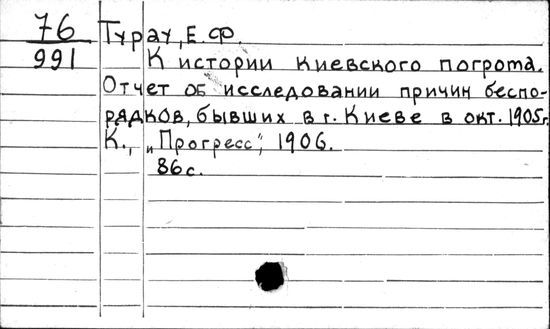 76
991
Турау, Е.Ф.
К истории Киевского погрома.
Отчет об исследовании причин беспо-
рядков, бывших в г. Киеве в окт. 1905г.
К., „Прогресс", 1906.
86с.